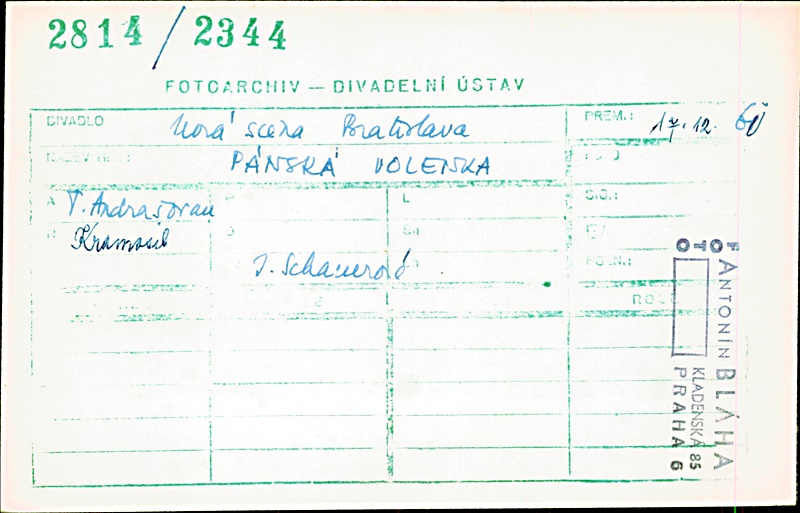 2814 / 2344
FOTOARCHIV — DIVADELNÍ ÚSTAV
DIVADLO Nová scéna Bratislava PREM.: 17. 12. 60
PÁNSKÁ VOLENKA
A T. Andrašovan L SIG.:
R Kramosil
J. Schauerová POZN.:
ROLE
FOTO
ANTONÍN BLÁHA
KLADENSKÁ 85
PRAHA 6